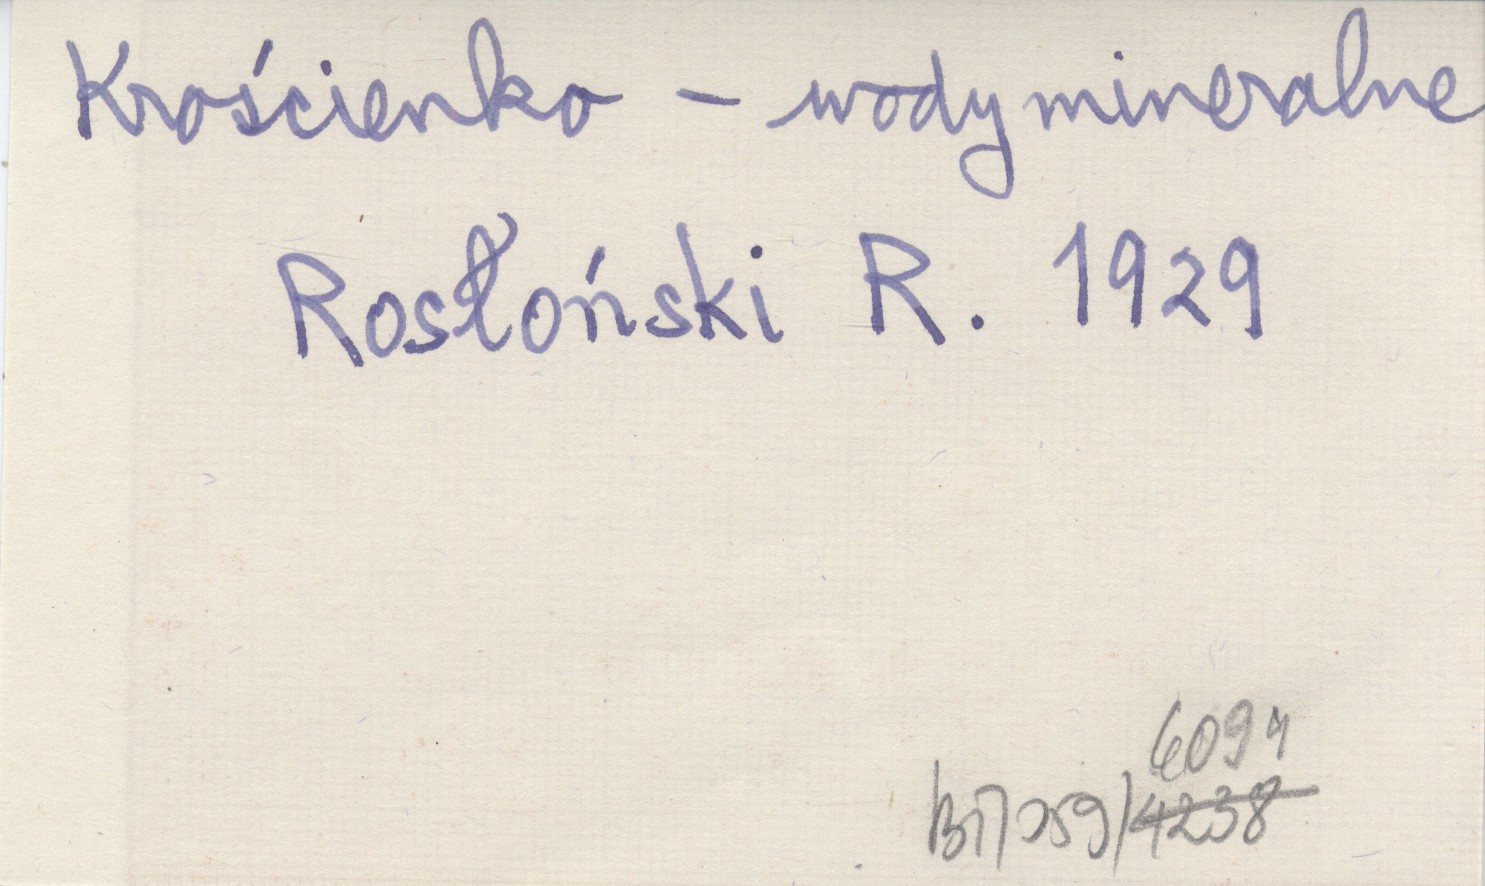 Krościenko – wody mineralne
Rosłoński R. 1929
6094
4238